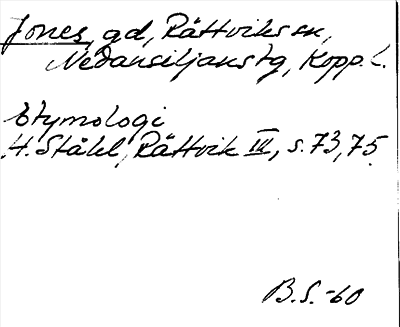 Jones, gd, Rättviks sn,
Nedansiljans tg, Kopp. l.
Etymologi
H. Ståhl, Rättvik III, s. 73, 75
B.S. -60